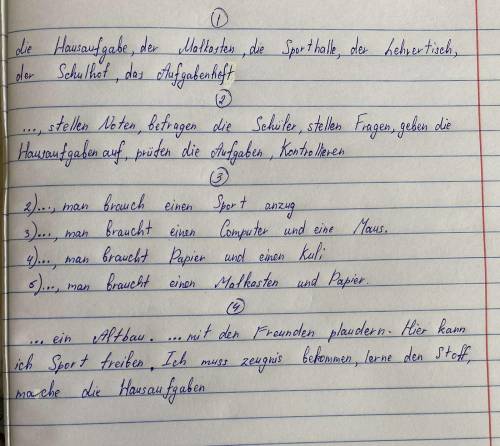 1
die Hausaufgabe, der Malkasten, die Sporthalle, der Lehrertisch,
der Schulhof, das Aufgabenheft
2
..., stellen Noten, befragen die Schüler, stellen Fragen, geben die
Hausaufgaben auf, prüfen die Aufgaben, Kontrollieren
3
2)..., man brauch einen Sport anzug
3)..., man braucht einen Computer und eine Maus.
4)..., man braucht Papier und einen Kuli
5)..., man braucht einen Malkasten und Papier.
4
... ein Altbau. ... mit den Freunden plaudern. Hier kann
ich Sport treiben. Ich muss zeugnis bekommen, lerne den Stoff,
mache die Hausaufgaben